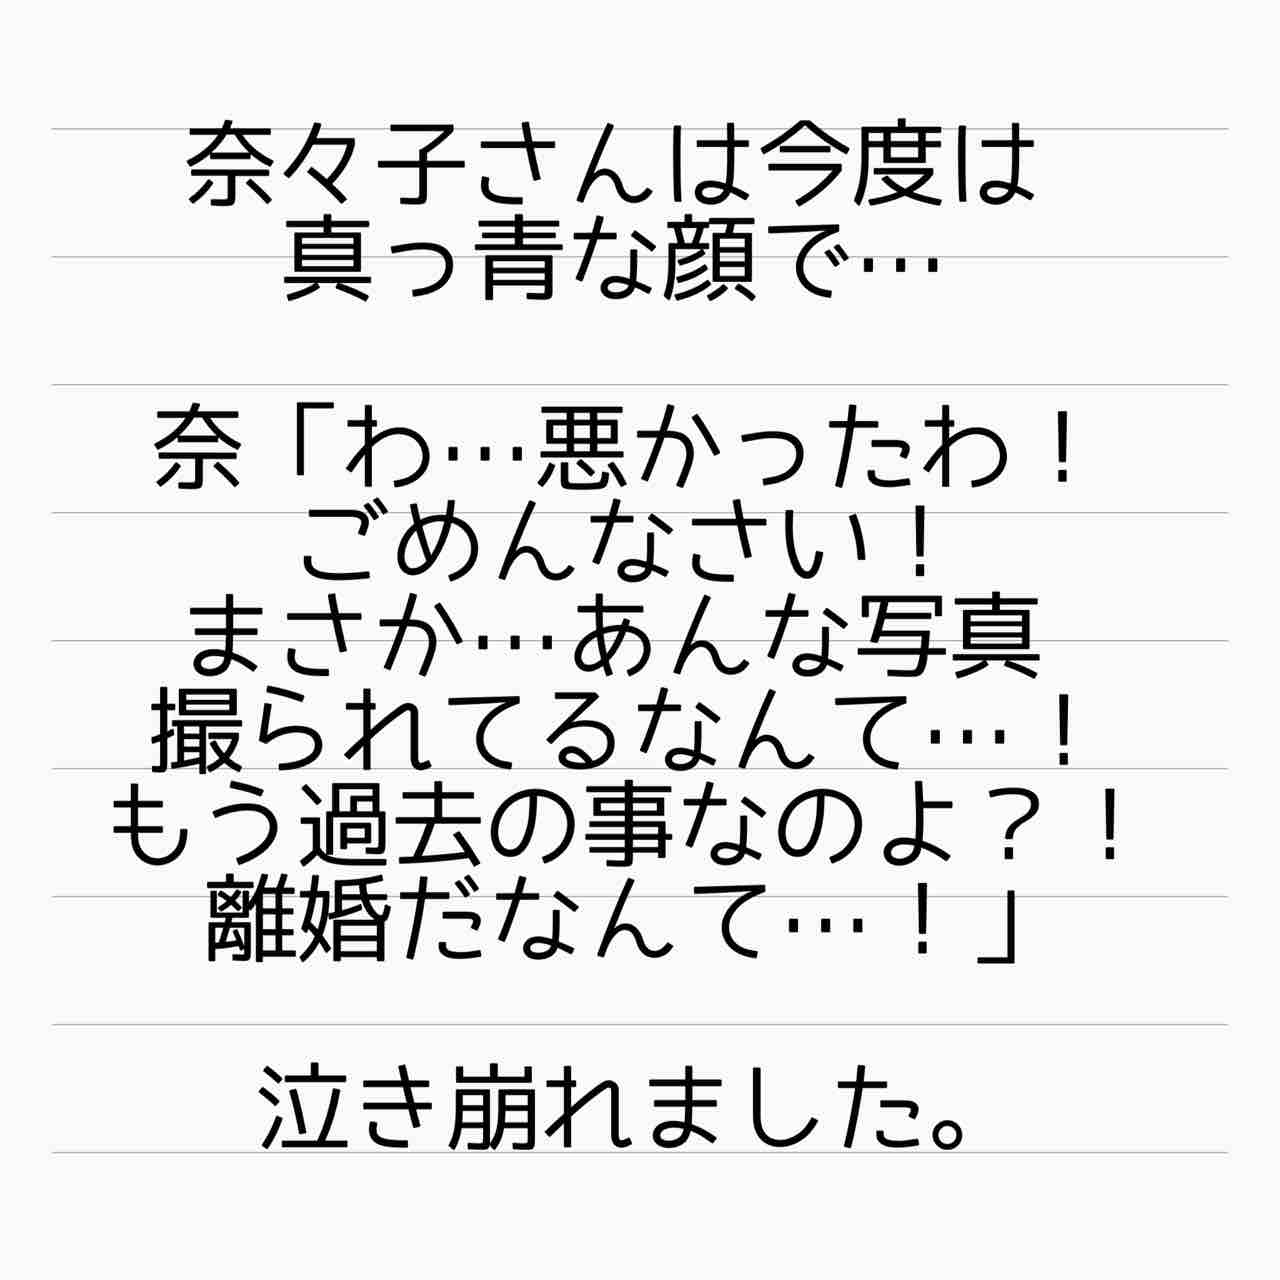 奈々子さんは今度は
真っ青な顔で…
奈「わ…悪かったわ！
ごめんなさい！
まさか…あんな写真
撮られてるなんて…！
もう過去の事なのよ？！
離婚だなんて…！」
泣き崩れました。